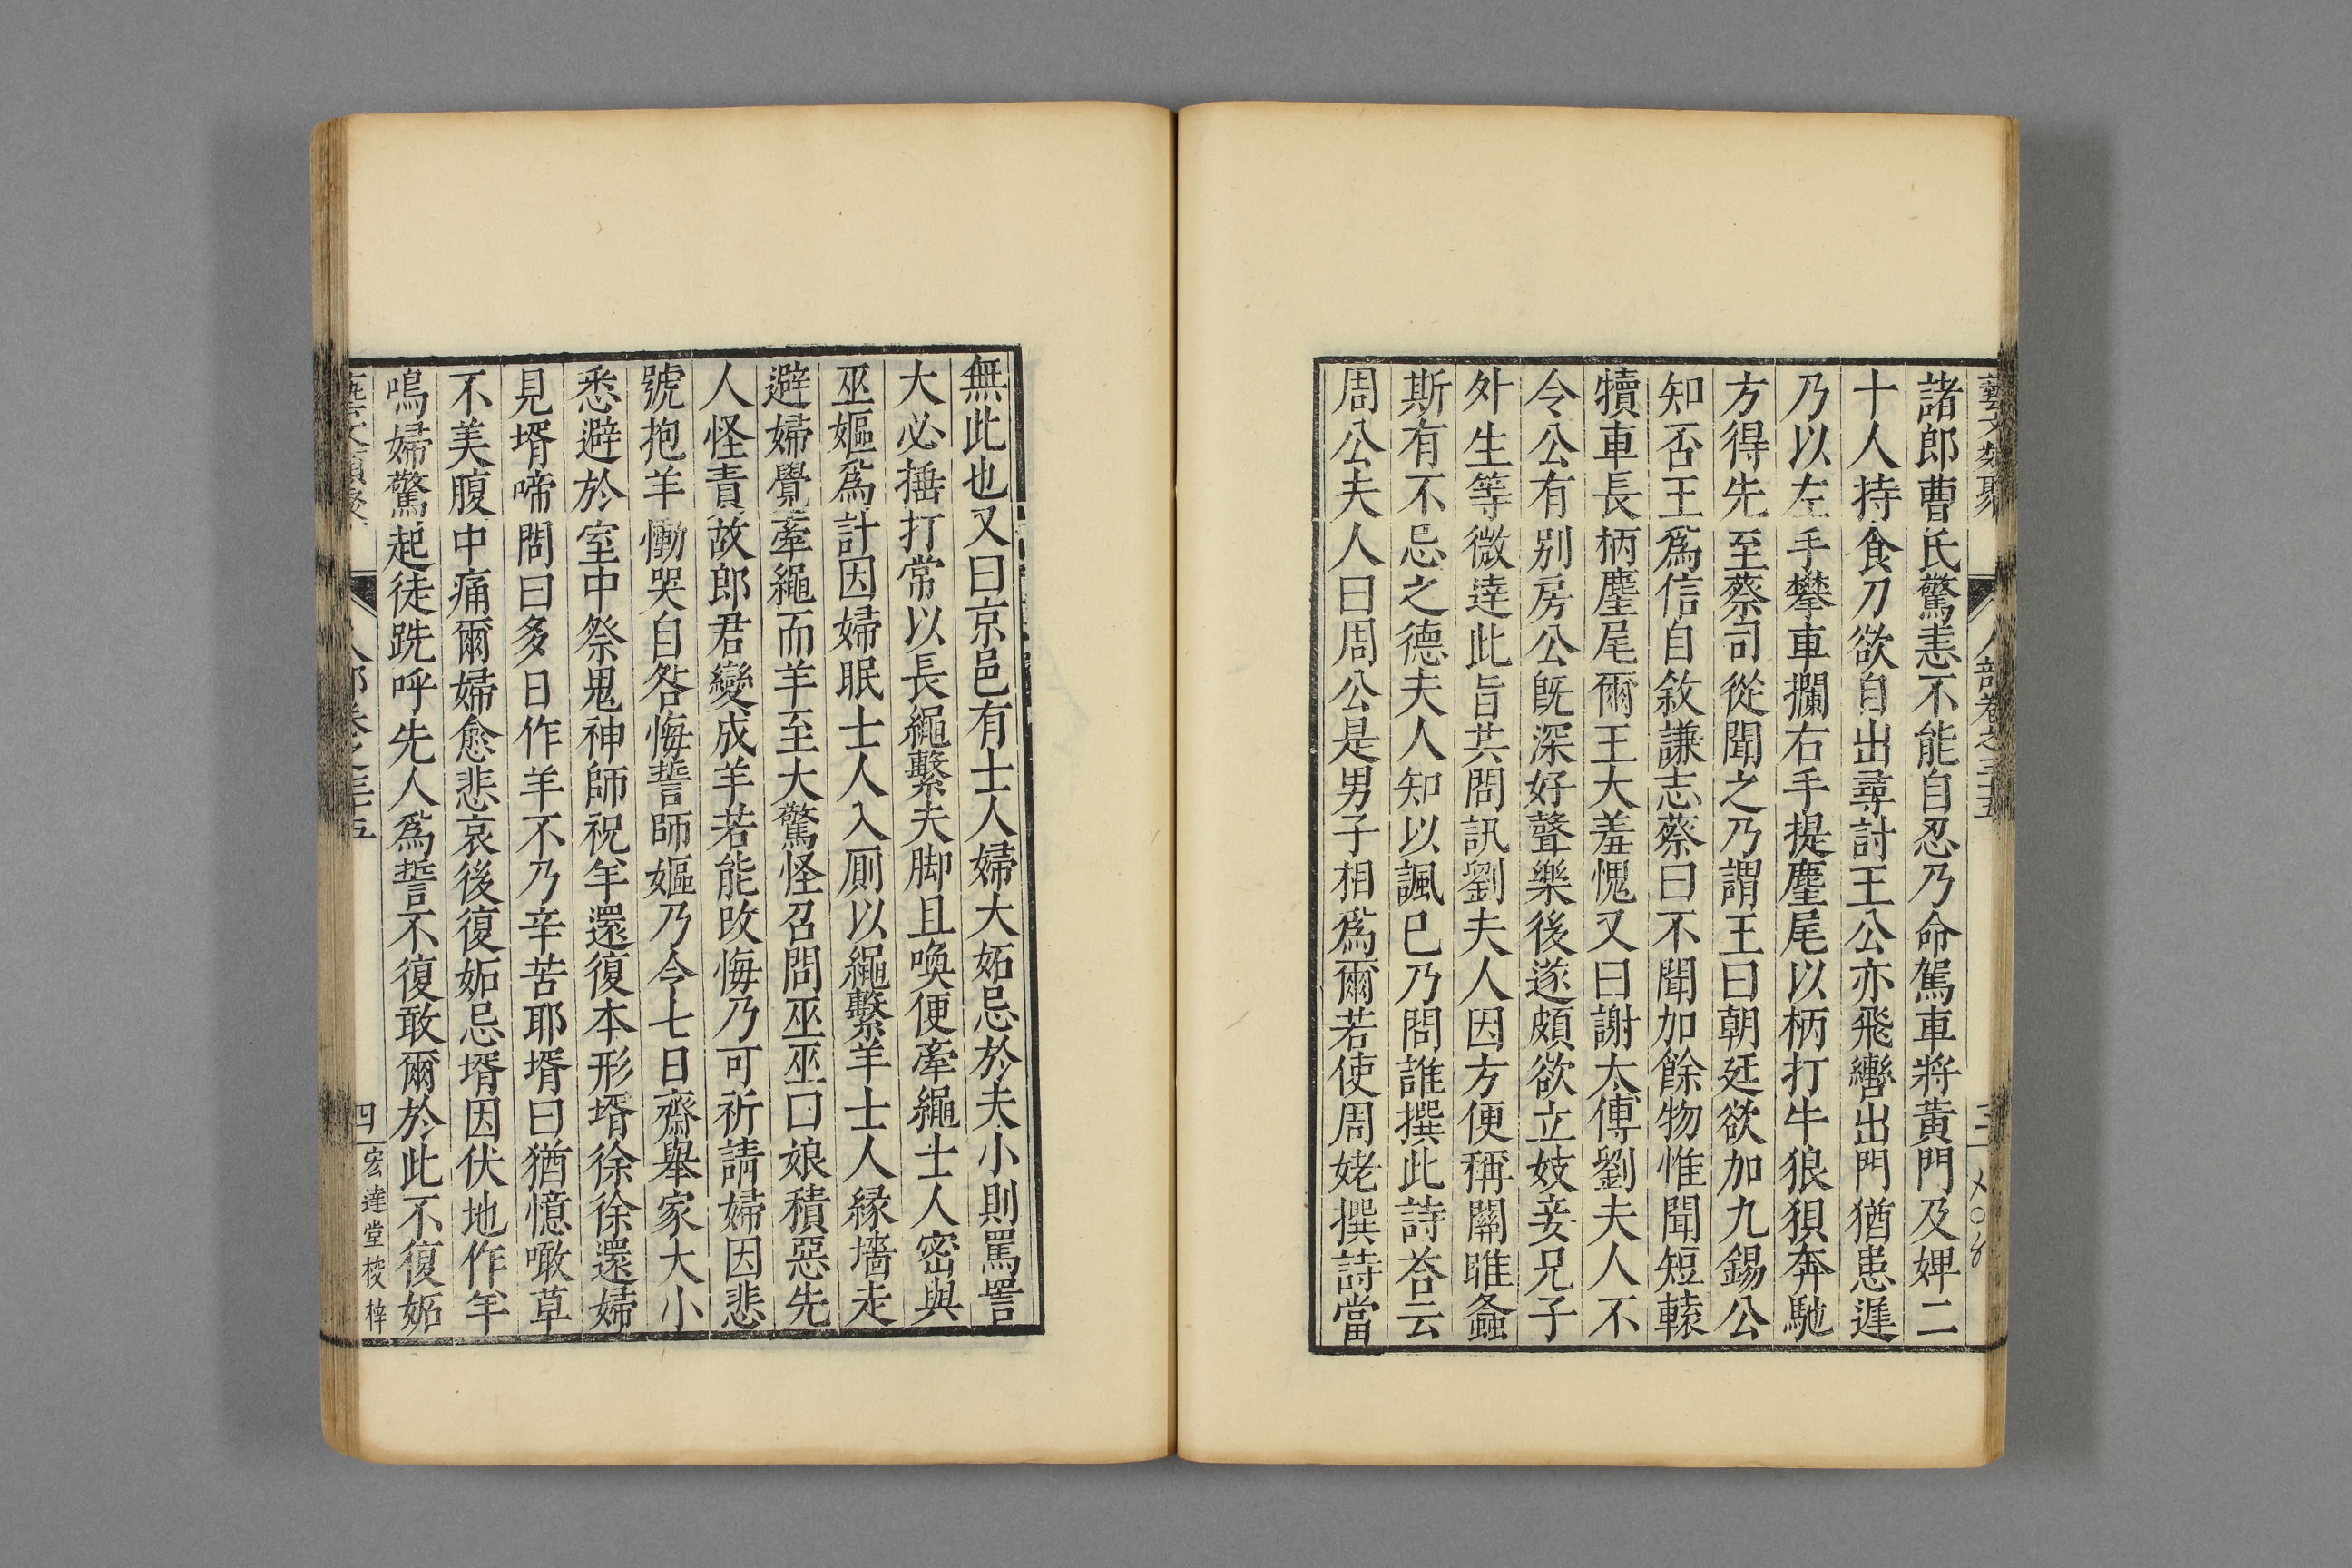 藝文類聚 人部卷之三十五 三
諸郎曹氏驚恚不能自忍乃命駕車將黃門及婢二
十人持食刀欲自出尋討王公亦飛轡出門猶患遲
乃以左手攀車攔右手提麈尾以柄打牛狼狽奔馳
方得先至蔡司從聞之乃謂王曰朝廷欲加九錫公
知否王爲信自敘謙志蔡曰不聞加餘物惟聞短轅
犢車長柄麈尾爾王大羞愧又曰謝太傅劉夫人不
令公有別房公旣深好聲樂後遂頗欲立妓妾兄子
外生等微達此旨共問訊劉夫人因方便稱關雎螽
斯有不忌之德夫人知以諷己乃問誰撰此詩荅云
周公夫人曰周公是男子相爲爾若使周姥撰詩當
無此也又曰京邑有士人婦大妬忌於夫小則罵詈
大必捶打常以長繩繫夫脚且喚便牽繩士人密與
巫嫗爲計因婦眠士人入厠以繩繫羊士人縁墻走
避婦覺牽繩而羊至大驚怪召問巫巫口娘積惡先
人怪責故郎君變成羊若能改悔乃可祈請婦因悲
號抱羊慟哭自咎悔誓師嫗乃令七日齋舉家大小
悉避於室中祭鬼神師祝羊還復本形壻徐徐還婦
見壻啼問曰多日作羊不乃辛苦耶壻曰猶憶噉草
不美腹中痛爾婦愈悲哀後復妬忌壻因伏地作羊
鳴婦驚起徒跣呼先人爲誓不復敢爾於此不復妬
藝文類聚 人部卷之三十五 四 宏達堂校梓